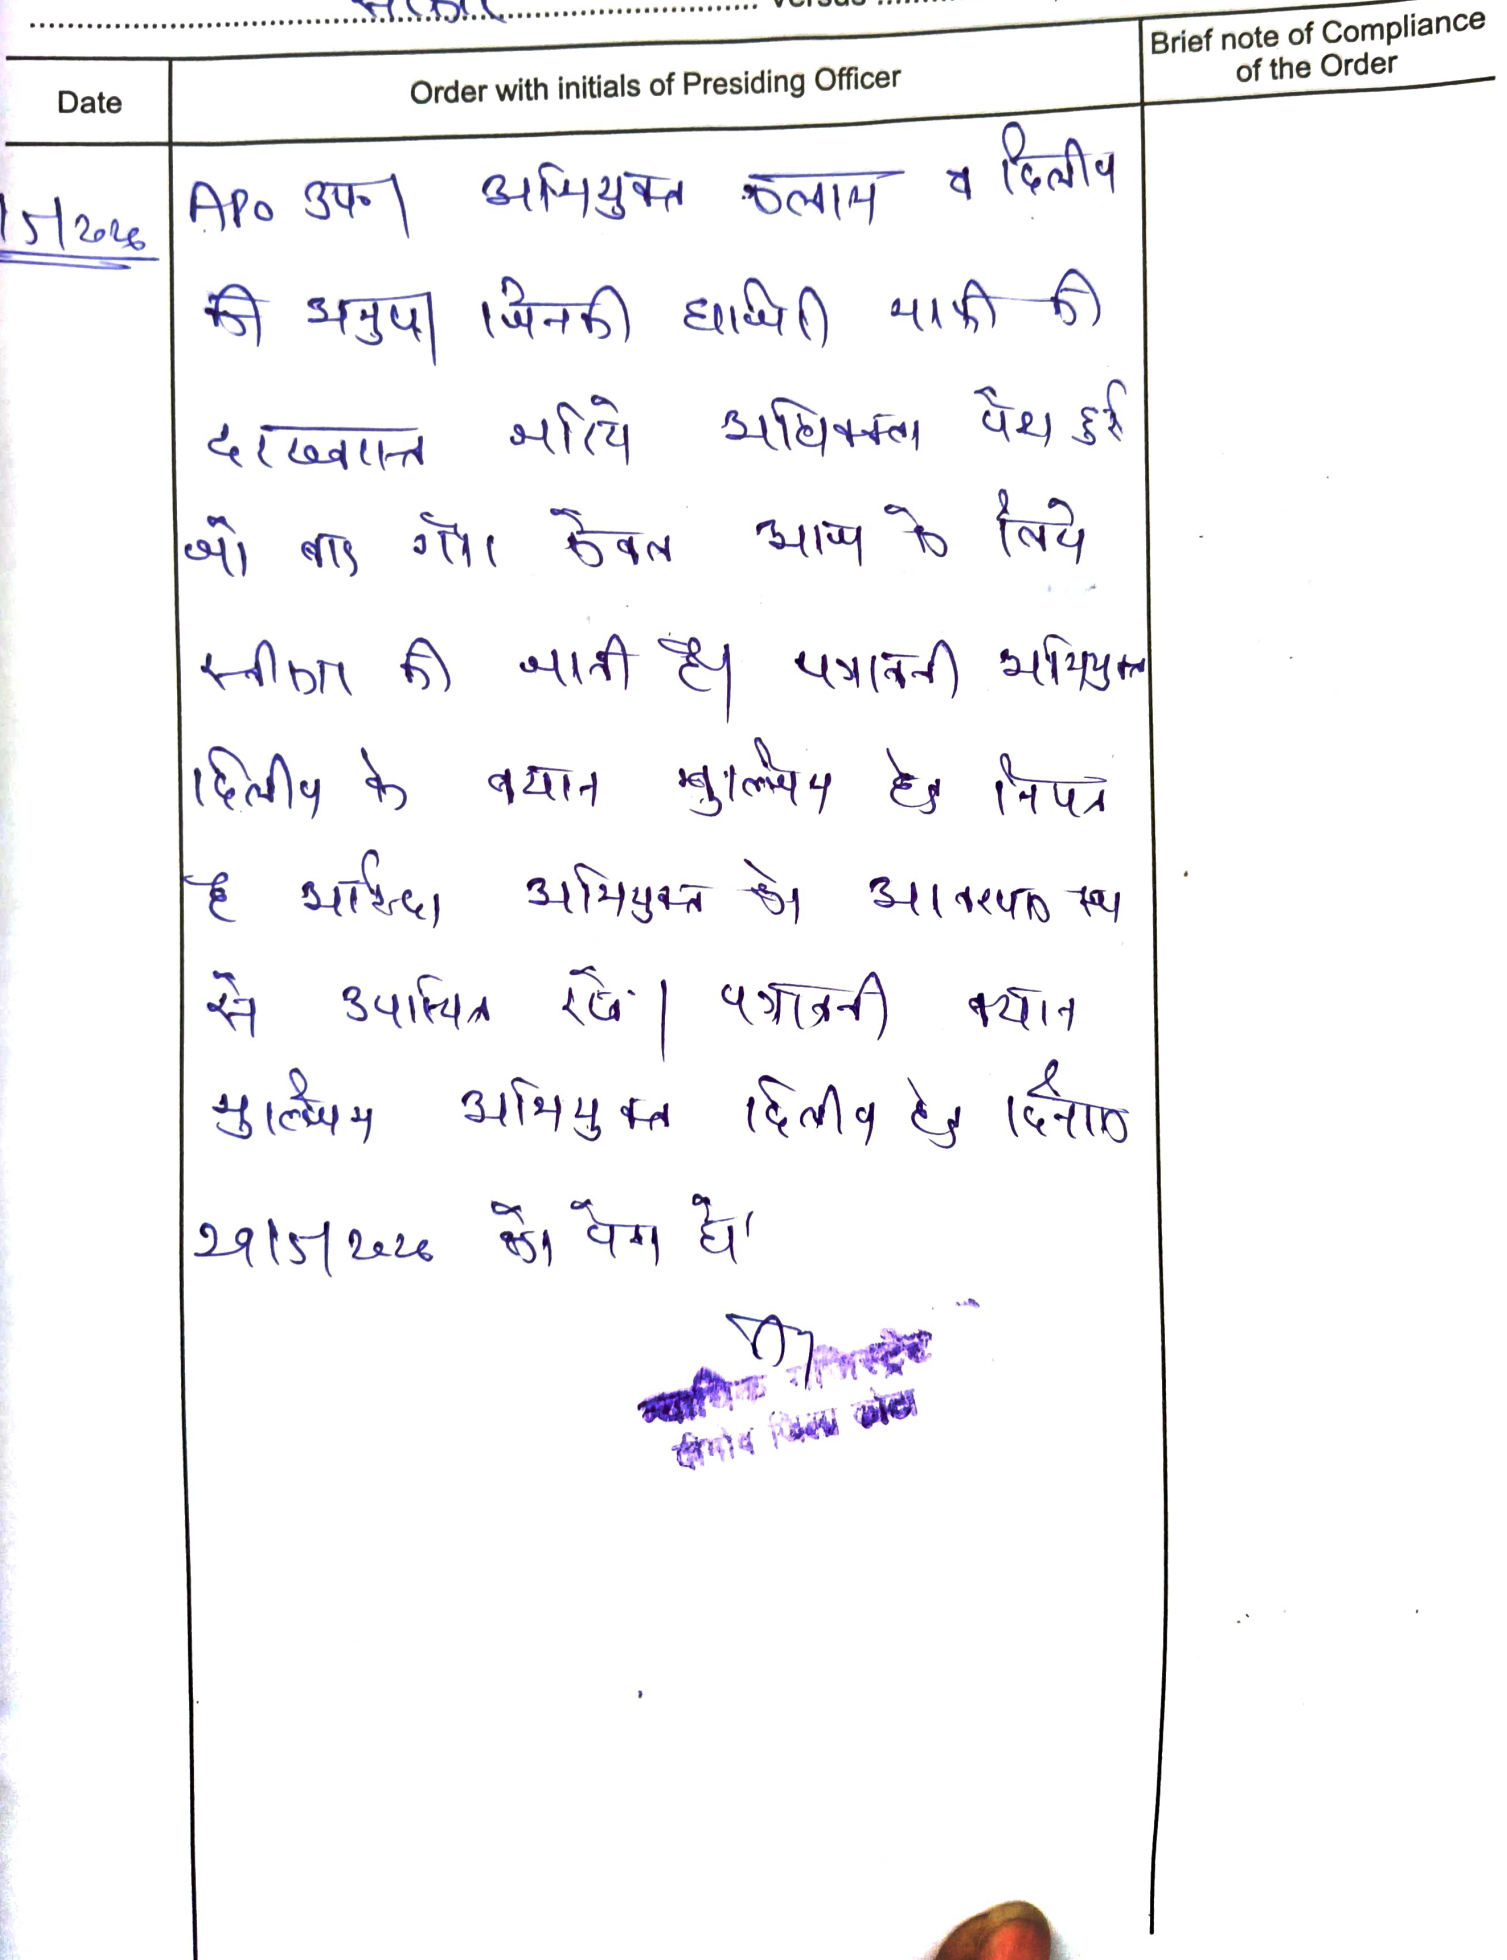 सरकार versus
Date Order with initials of Presiding Officer Brief note of Compliance of the Order
5/2026 APO उप० अभियुक्त कलाम व दिलीप
की अनुप० जिनकी हाजिरी माफी की
दरख्वास्त जरिये अधिवक्ता पेश हुई
जो बाद गौर केवल आज के लिये
स्वीकार की जाती है। पत्रावली अभियुक्त
दिलीप के बयान मुल्जिम हेतु नियत
है आईन्दा अभियुक्त को आवश्यक रूप
से उपस्थित रखें। पत्रावली बयान
मुल्जिम अभियुक्त दिलीप हेतु दिनांक
29/5/2026 को पेश हो
न्यायिक मजिस्ट्रेट
जिला कोटा